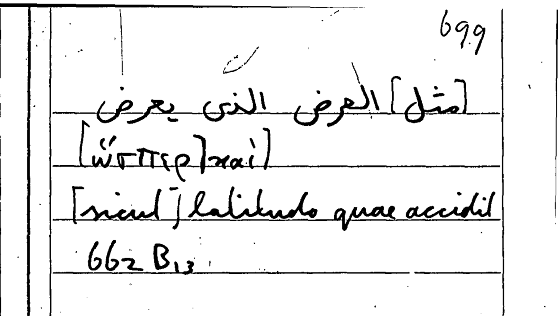 699
[مثل] العرض الذى يعرض
[ὥσπερ] καὶ
[sicut] latitudo quae accidit
662 B13